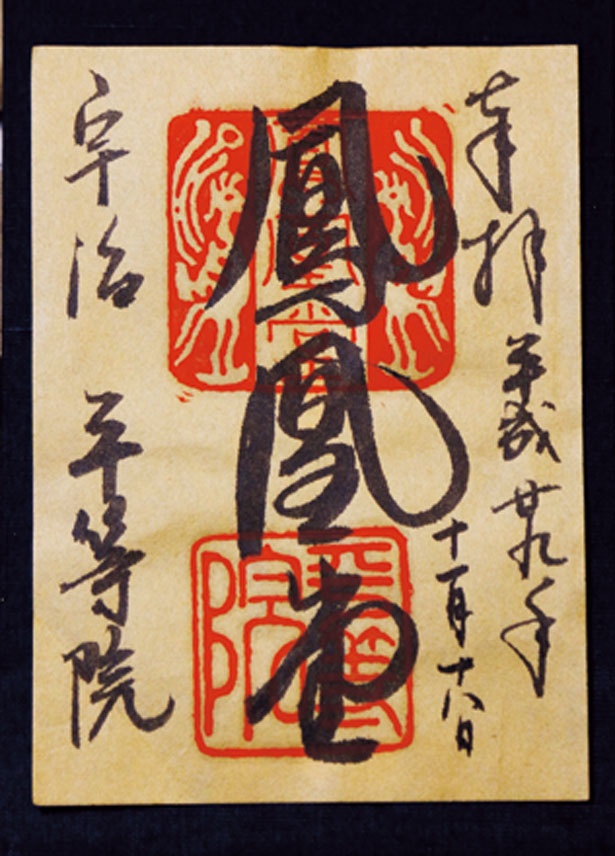 奉拝 平成廿九年
十一月十八日
鳳凰堂
宇治 平等院
平等院